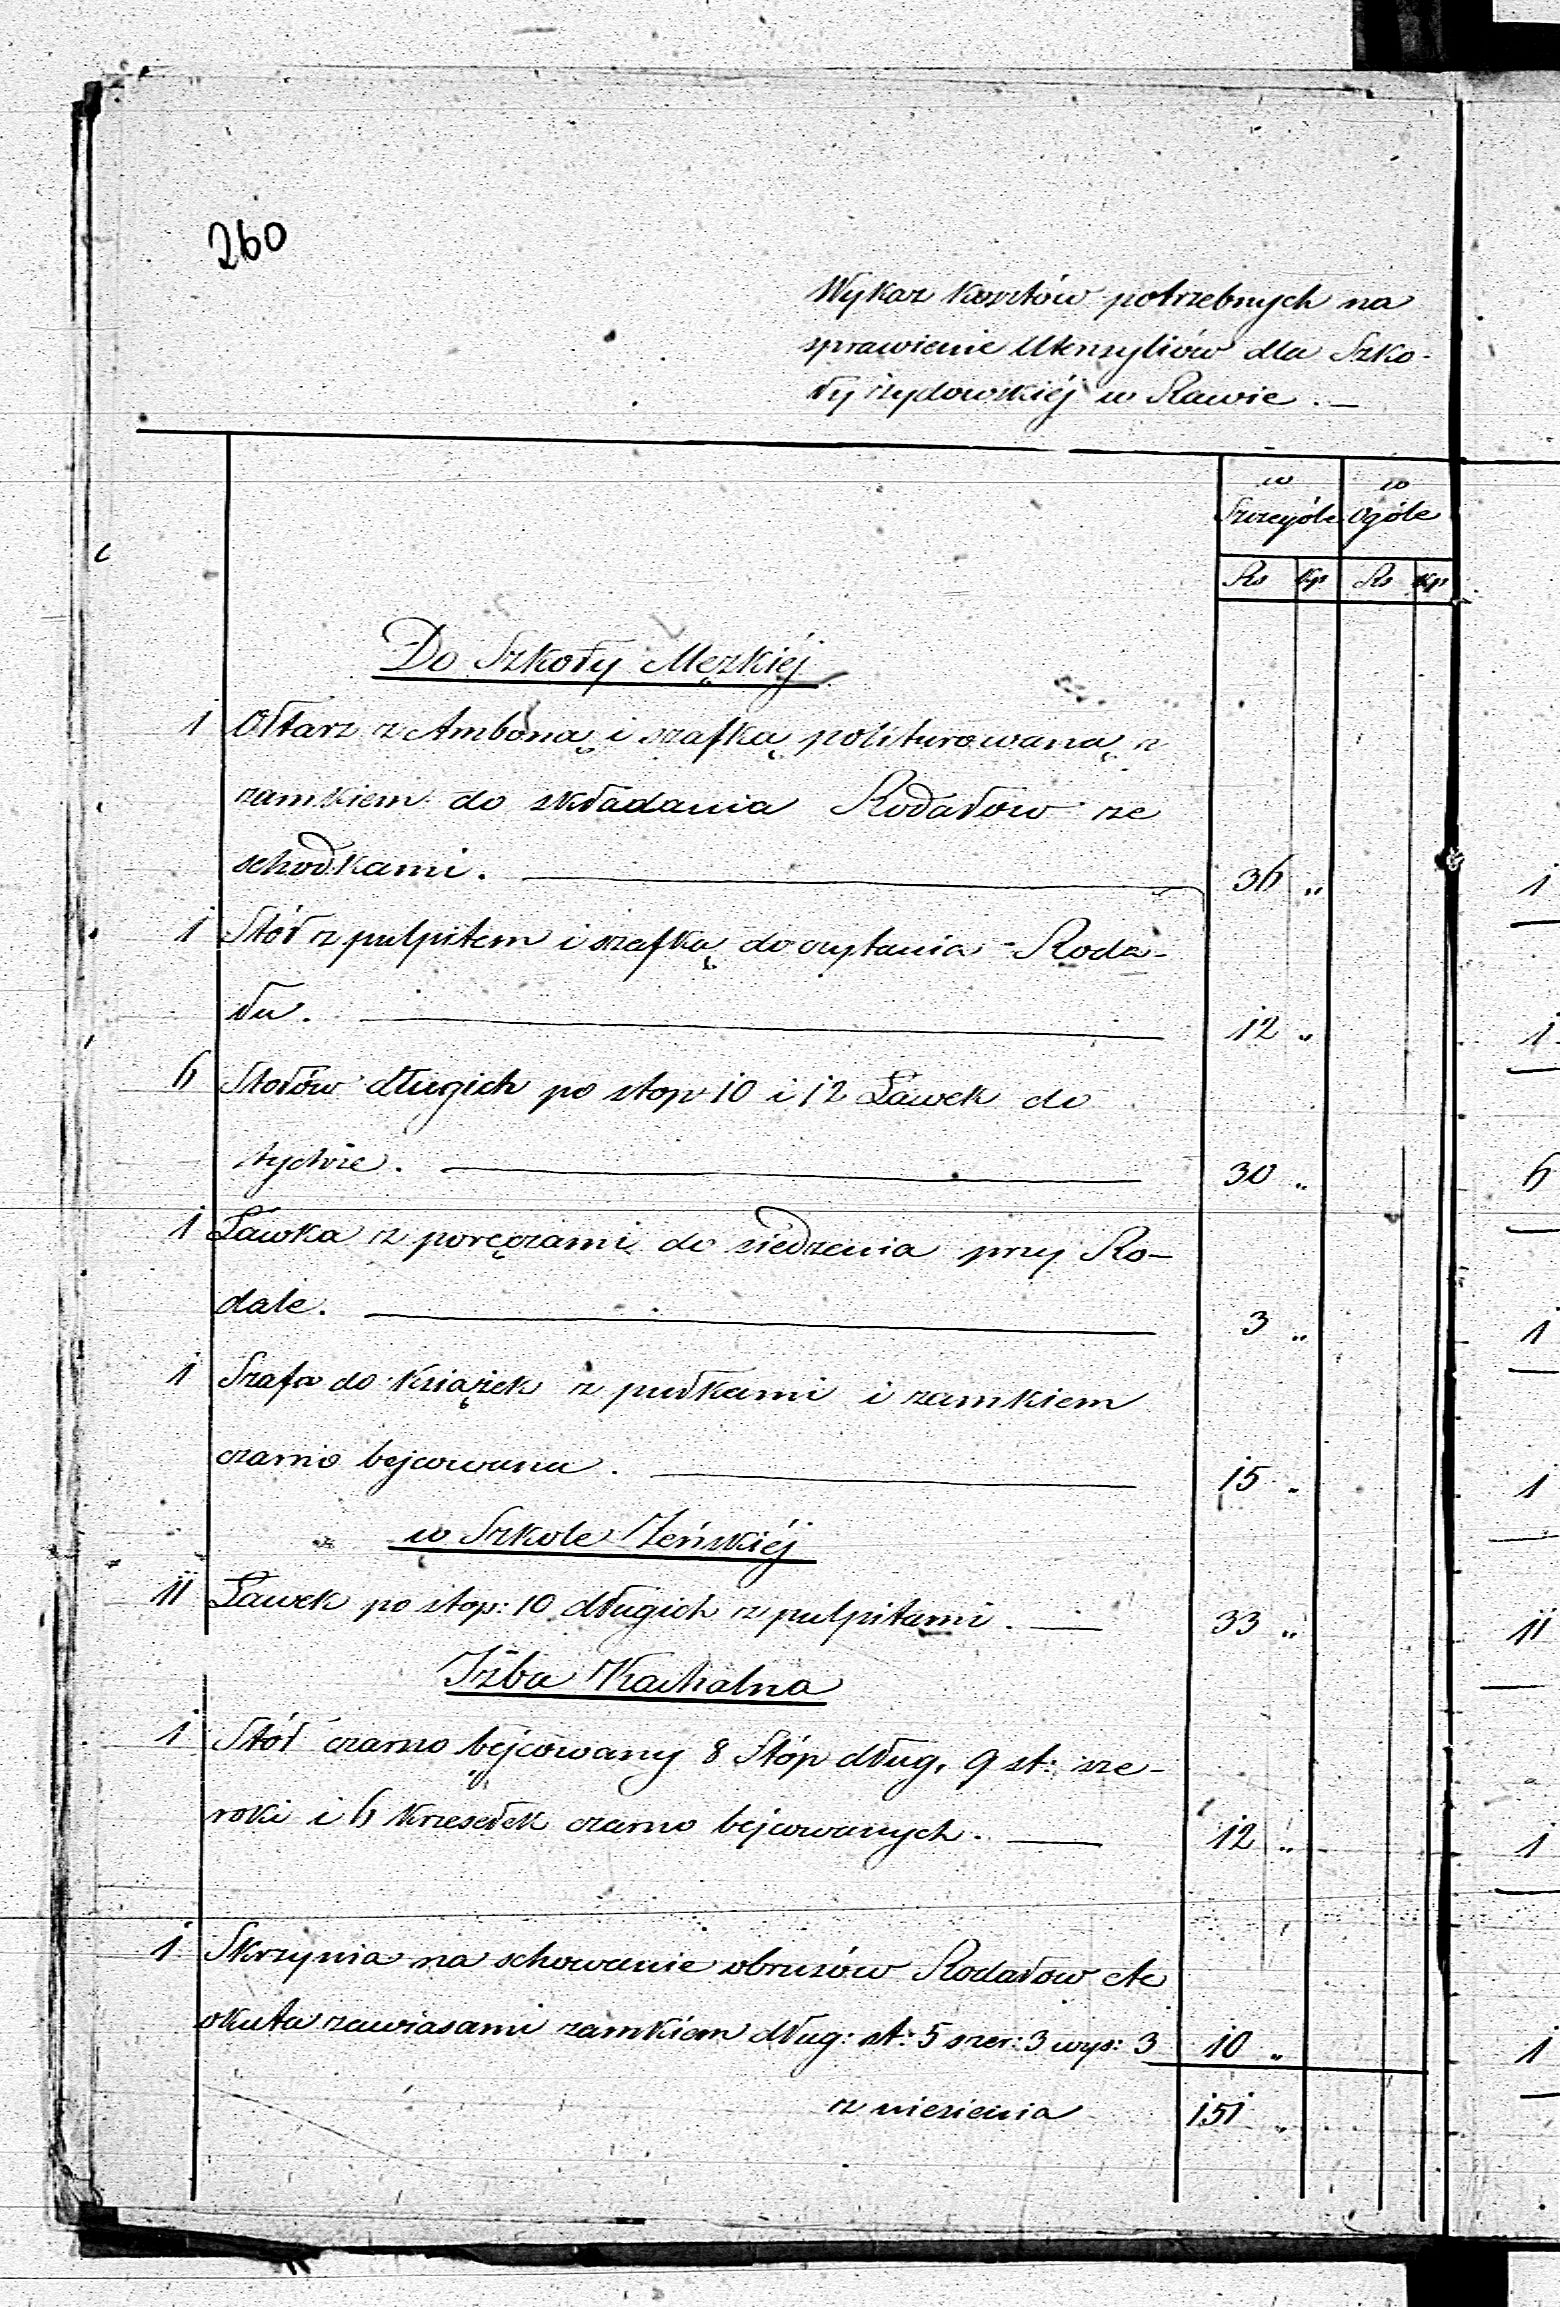 260
Wykaz kosztów potrzebnych na
sprawienie Utensyliów dla Szko-
ły żydowskiéj w Rawie. —
w Szczególe w Ogóle
Rs kp Rs kp
Do Szkoły Męzkiéj
1 Ołtarz z Amboną i szafką politurowaną z
zamkiem do składania Rodałow ze
schodkami. 36 "
1 Stół z pulpitem i szafką do czytania Roda-
łu. 12 "
6 Stołów długich po stop 10 i 12 Ławek do
tychże. 30 "
1 Ławka z poręczami do siedzenia przy Ro-
dale. 3 "
1 Szafa do książek z pułkami i zamkiem
czarno bejcowana. 15 "
w Szkole Żeńskiéj
11 Ławek po stop: 10 długich z pulpitami. 33 "
Izba Kachalna
1 Stół czarno bejcowany 8 Stóp dług. 9 st: sze-
roki i 6 krzesełek czarno bejcowanych. 12 "
1 Skrzynia na schowanie obrusów Rodałow etc
okuta zawiasami zamkiem dług: st: 5 szer: 3 wys: 3 10 "
z niesienia 151 "
1
1
6
1
1
11
1
1